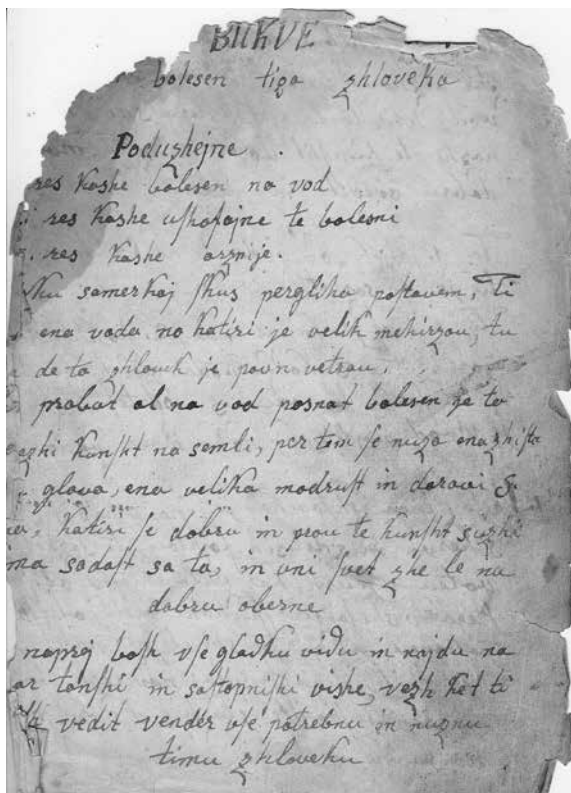 BUKVE
bolesen tiga zhlovéka
Poduzhejne.
res kashe bolesen na vod
res kashe uſhafajne te bolesni
res kashe arznije.
ku samerkaj ſkus pergliko poſtavem, Ti
ena voda no katiri je velik mehirzou, tu
de ta zhlovik je povn vetrou,
probat al na vod posnat bolesen je ta
kunſht na semli, per tem ſe nuza ena zhiſta
glava, ena velika modruſt in daravi
katiri ſe dobru in prou te kunſht
ima sadaſt sa ta, in uni ſvet zhe le na
dobru oberne
naprej boſh vſe gladku vidu in najdu na
in saſtopniſhi vishe, vezh ket ti
vedit vendér vſe potrebnu in nuznu
timu zhloveku